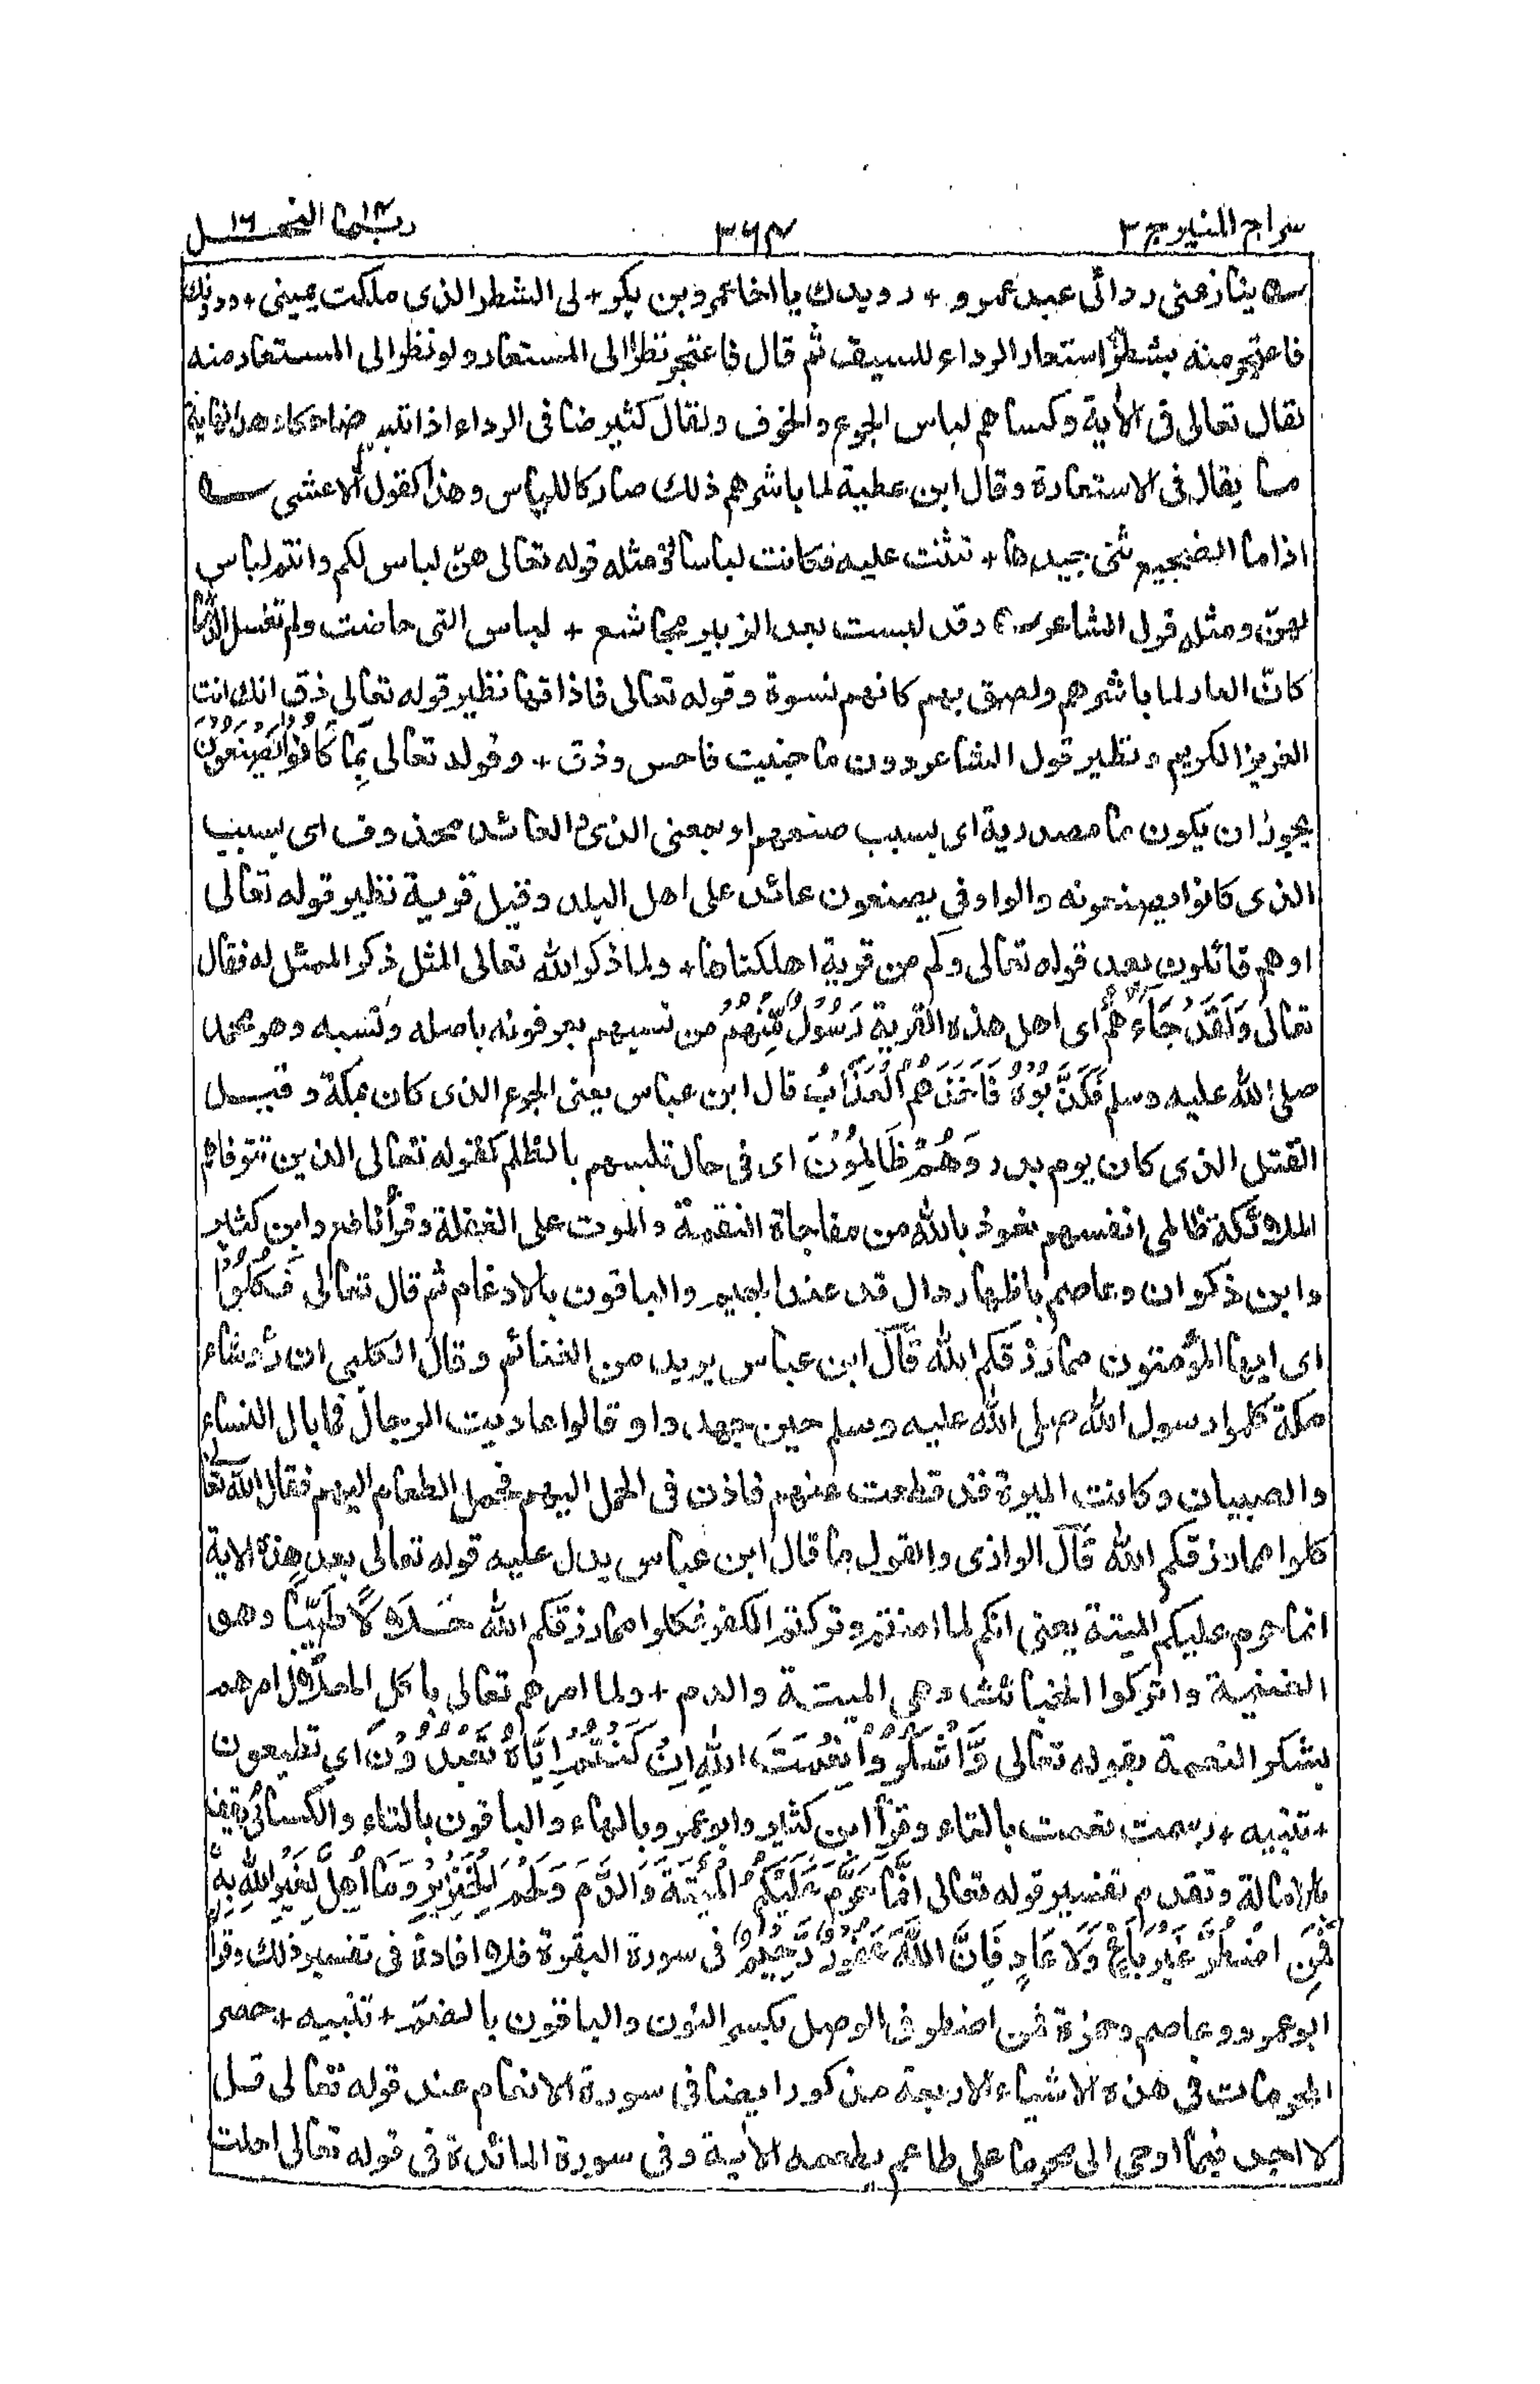 سراج المنير ج ٣ ٣٦٤ ربما ١٤ النحل ١٦
ينازعنى ردائى عبد عمرو + رويدك يا اخا عمرو بن بكر + لى الشطر الذى ملكت يمينى + ودونك
فاعتجر منه بشطر استعار الرداء للسيف ثم قال فاعتجر نظرا الى المستعار ولو نظر الى المستعار منه
لقال تعالى فى الأية وكساهم لباس الجوع والخوف ولقال كثير ضافى الرداء اذا تبسم ضاحكا وهذا نهاية
ما يقال فى الاستعارة وقال ابن عطية لما باشرهم ذلك صار كاللباس وهذا كقول الاعشى
اذا ما الضجيع ثنى جيدها + تثنت عليه فكانت لباسا ومثله قوله تعالى هنّ لباس لكم وانتم لباس
لهنّ ومثله قول الشاعر وقد لبست بعد الزبير مجاشع + لباس التى حاضت ولم تغسل الدما
كانّ العار لما باشرهم ولصق بهم كانهم لبسوة وقوله تعالى فاذاقها نظير قوله تعالى ذق انك انت
العزيز الكريم ونظير قول الشاعر دون ما جنيت فاحس وذق + وقوله تعالى بِمَا كَانُوْا يَصْنَعُوْنَ
يجوز ان يكون ما مصدرية اى بسبب صنعهم او بمعنى الذى والعائد محذوف اى بسبب
الذى كانوا يصنعونه والواو فى يصنعون عائد على اهل البلد وقيل قرية نظير قوله تعالى
او هم قائلون بعد قوله تعالى وكم من قرية اهلكناها + ولما ذكر الله تعالى المثل ذكر الممثل له فقال
تعالى وَلَقَدْ جَاءَهُمْ اى اهل هذه القرية رَسُوْلٌ مِّنْهُمْ من نسبهم يعرفونه باصله ونسبه وهو محمد
صلى الله عليه وسلم فَكَذَّبُوْهُ فَاَخَذَهُمُ الْعَذَابُ قال ابن عباس يعنى الجوع الذى كان بمكة وقيل
القتل الذى كان يوم بدر وَهُمْ ظَالِمُوْنَ اى فى حال تلبسهم بالظلم كقوله تعالى الذين تتوفاهم
الملائكة ظالمى انفسهم نعوذ بالله من مفاجاة النقمة والموت على الغفلة وقرأ نافع وابن كثير
وابن ذكوان وعاصم باظهار دال قد عند الجيم والباقون بالادغام ثم قال تعالى فَكُلُوْا
اى ايها المؤمنون مما رزقكم الله قال ابن عباس يريد من الغنائم وقال الكلبى ان رؤساء
مكة كلموا رسول الله صلى الله عليه وسلم حين جهدوا وقالوا عاديت الرجال فما بال النساء
والصبيان وكانت الميرة قد قطعت عنهم فاذن فى الحمل اليهم فحمل الطعام اليهم فقال الله تعالى
كلوا مما رزقكم الله قال الواذى والقول ما قال ابن عباس يدل عليه قوله تعالى بعد هذه الاية
انما حرم عليكم الميتة يعنى انكم لما امنتم وتركتم الكفر فكلوا مما رزقكم الله حَلَالًا طَيِّبًا وهو
الغنيمة واتركوا الخبائث وهى الميتة والدم + ولما امرهم تعالى باكل الحلال امرهم
بشكر النعمة بقوله تعالى وَّاشْكُرُوْا نِعْمَتَ اللّٰهِ اِنْ كُنْتُمْ اِيَّاهُ تَعْبُدُوْنَ اى تطيعون
+ تنبيه + رسمت نعمت بالتاء وقرأ ابن كثير وابو عمرو بالهاء والباقون بالتاء والكسائى يقف
بالامالة وتقدم تفسير قوله تعالى اِنَّمَا حَرَّمَ عَلَيْكُمُ الْمَيْتَةَ وَالدَّمَ وَلَحْمَ الْخِنْزِيْرِ وَمَا اُهِلَّ لِغَيْرِ اللّٰهِ بِهٖ
فَمَنِ اضْطُرَّ غَيْرَ بَاغٍ وَّلَا عَادٍ فَاِنَّ اللّٰهَ غَفُوْرٌ رَّحِيْمٌ فى سورة البقرة فلا افادة فى تفسير ذلك وقرأ
ابو عمرو وعاصم وحمزة فمن اضطر فى الوصل بكسر النون والباقون بالضم + تنبيه + حصر
المحرمات فى هذه الاشياء الاربعة مذكور ايضا فى سورة الانعام عند قوله تعالى قل
لا اجد فيما اوحى الى محرما على طاعم يطعمه الأية وفى سورة المائدة فى قوله تعالى احلت